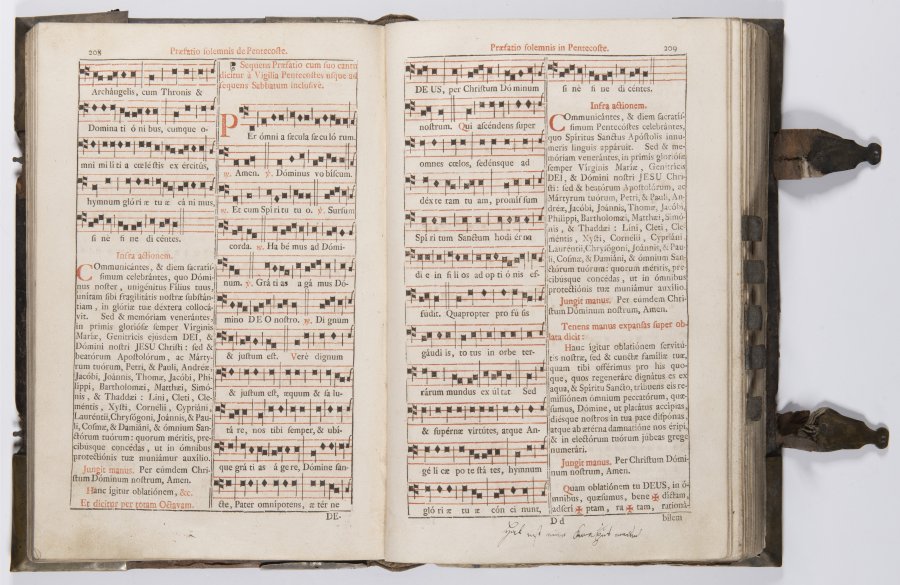 208
Præfatio solemnis de Pentecoste.
Archángelis, cum Thronis &
Domina ti ó ni bus, cumque o-
mni mi li ti a cœlé stis ex ér citus,
hymnum gló ri æ tu æ cá ni mus,
si ne fi ne di céntes.
Infra actionem.
COmmunicántes, & diem sacratis-
simum celebrántes, quo Dómi-
nus noster, unigénitus Fílius tuus,
unítam sibi fragilitátis nostræ substán-
tiam, in glóriæ tuæ déxtera collocá-
vit. Sed & memóriam venerántes,
in primis gloriósæ semper Vírginis
Maríæ, Genitrícis ejusdem DEI, &
Dómini nostri JESU Christi: sed &
beatórum Apostolórum, ac Márty-
rum tuórum, Petri, & Pauli, Andréæ,
Jacóbi, Joánnis, Thomæ, Jacóbi, Phi-
líppi, Bartholomæi, Matthæi, Simó-
nis, & Thaddæi: Lini, Cleti, Cle-
méntis, Xysti, Cornélii, Cypriáni,
Lauréntii, Chrysógoni, Joánnis, & Pau-
li, Cosmæ, & Damiáni, & ómnium San-
ctórum tuórum: quorum méritis, pre-
cibúsque concédas, ut in ómnibus
protectiónis tuæ muniámur auxílio.
Jungit manus. Per eúmdem Chri-
stum Dóminum nostrum, Amen.
Hanc ígitur oblatiónem, &c.
Et dicitur per totam Octavam.
Sequens Præfatio cum suo cantu
dicitur à Vigilia Pentecostes usque ad
sequens Sabbatum inclusive.
PEr ómni a sæcula sæcu ló rum.
℟. Amen. ℣. Dóminus vo bíscum.
℟. Et cum Spí ri tu tu o. ℣. Sursum
corda. ℟. Ha bé mus ad Dómi-
num. ℣. Grá ti as a gá mus Dó-
mino DE O nostro. ℟. Di gnum
& justum est. Veré dignum
& justum est, æquum & sa lu-
tá re, nos tibi semper, & ubí-
que grá ti as á ge re, Dómine san-
cte, Pater omnípotens, æ tér ne
DE-
Præfatio solemnis in Pentecoste.
209
DE US, per Christum Dó minum
nostrum. Qui ascéndens super
omnes cœlos, sedénsque ad
déx te ram tu am, promís sum
Spí ri tum Sanctum hodi ér na
di e in fí li os ad op ti ó nis ef-
fudit. Quaprópter pro fú sis
gáudi is, to tus in orbe ter-
rárum mundus ex ul tat Sed
& supérnæ virtútes, atque An-
gé li cæ po te stá tes, hymnum
gló ri æ tu æ cón ci nunt,
si ne fi ne di céntes.
Infra actionem.
COmmunicántes, & diem sacratís-
simum Pentecóstes celebrántes,
quo Spíritus Sanctus Apóstolis innú-
meris linguis appáruit. Sed & me-
móriam venerántes, in primis gloriósæ
semper Vírginis Maríæ, Genitrícis
DEI, & Dómini nostri JESU Chri-
sti: sed & beatórum Apostolórum, ac
Mártyrum tuórum, Petri, & Pauli, An-
dréæ, Jacóbi, Joánnis, Thomæ, Jacóbi,
Philíppi, Bartholomæi, Matthæi, Simó-
nis, & Thaddæi: Lini, Cleti, Cle-
méntis, Xysti, Cornélii, Cypriáni,
Lauréntii, Chrysógoni, Joánnis, & Pau-
li, Cosmæ, & Damiáni, & ómnium San-
ctórum tuórum: quorum méritis, pre-
cibúsque concédas, ut in ómnibus
protectiónis tuæ muniámur auxílio.
Jungit manus. Per eúmdem Chri-
stum Dóminum nostrum, Amen.
Tenens manus expansas super ob-
lata dicit:
Hanc ígitur oblatiónem servitú-
tis nostræ, sed & cunctæ famíliæ tuæ,
quam tibi offérimus pro his quo-
que, quos regeneráre dignátus es ex
aqua, & Spíritu Sancto, tríbuens eis re-
missiónem ómnium peccatórum, quǽ-
sumus, Dómine, ut placátus accípias,
diésque nostros in tua pace dispónas,
atque ab ætérna damnatióne nos éripi,
& in electórum tuórum júbeas grege
numerári.
Jungit manus. Per Christum Dómi-
num nostrum, Amen.
Quam oblatiónem tu DEUS, in ó-
mnibus, quǽsumus, bene ✠ díctam,
adscri ✠ ptam, ra ✠ tam, rationá-
D d
bilem